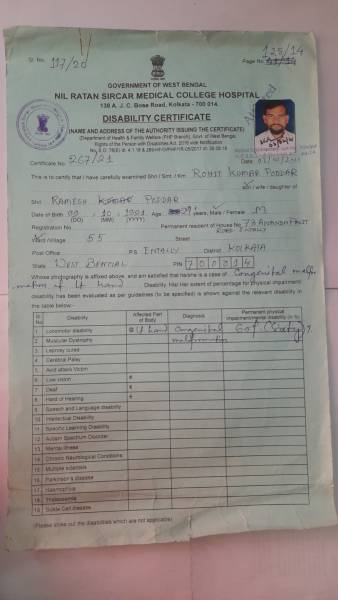 Sl. No. 117/20
125/14
Page No. 41/14
GOVERNMENT OF WEST BENGAL
NIL RATAN SIRCAR MEDICAL COLLEGE HOSPITAL
138 A. J. C. Bose Road, Kolkata - 700 014.
DISABILITY CERTIFICATE
(NAME AND ADDRESS OF THE AUTHORITY ISSUING THE CERTIFICATE)
(Department of Health & Family Welfare (PHP Branch), Govt. of West Bengal
Rights of the Person with Disabilities Act, 2016 vide Notification
Certificate No. 267/21
Date
This is to certify that I have carefully examined Shri / Smt. / Km. ROHIT KUMAR PODDAR
son / wife / daughter of
Shri RAMESH KUMAR PODDAR
Date of Birth 10 2001 Age years, Male / Female M
(DD) (MM) (YYYY)
Registration No. Permanent resident of House No.
Ward/Village 55 Street
Post Office P.S ENTALLY District KOLKATA
State WEST BENGAL PIN 700014
Whose photograph is affixed above, and am satisfied that he/she is a case of Congenital malfor
mation of Lt hand Disability. His/ Her extent of percentage for physical impairment/
disability has been evaluated as per guidelines (to be specified) is shown against the relevant disability in
the table below:-
Sl. No Disability Affected Part of Body Diagnosis Permanent physical impairment/mental disability (in %)
1 Locomotor disability Lt hand Congenital malformation 60% (Sixty) %
2 Muscular Dystrophy
3 Leprosy cured
4 Cerebral Palsy
5 Acid attack Victim
6 Low vision #
7 Deaf €
8 Hard of Hearing €
9 Speech and Language disability
10 Intellectual Disability
11 Specific Learning Disability
12 Autism Spectrum Disorder
13 Mental illness
14 Chronic Neurological Conditions
15 Multiple sclerosis
16 Parkinson's disease
17 Haemophilia
18 Thalassemia
19 Sickle Cell disease
(Please strike out the disabilities which are not applicable)